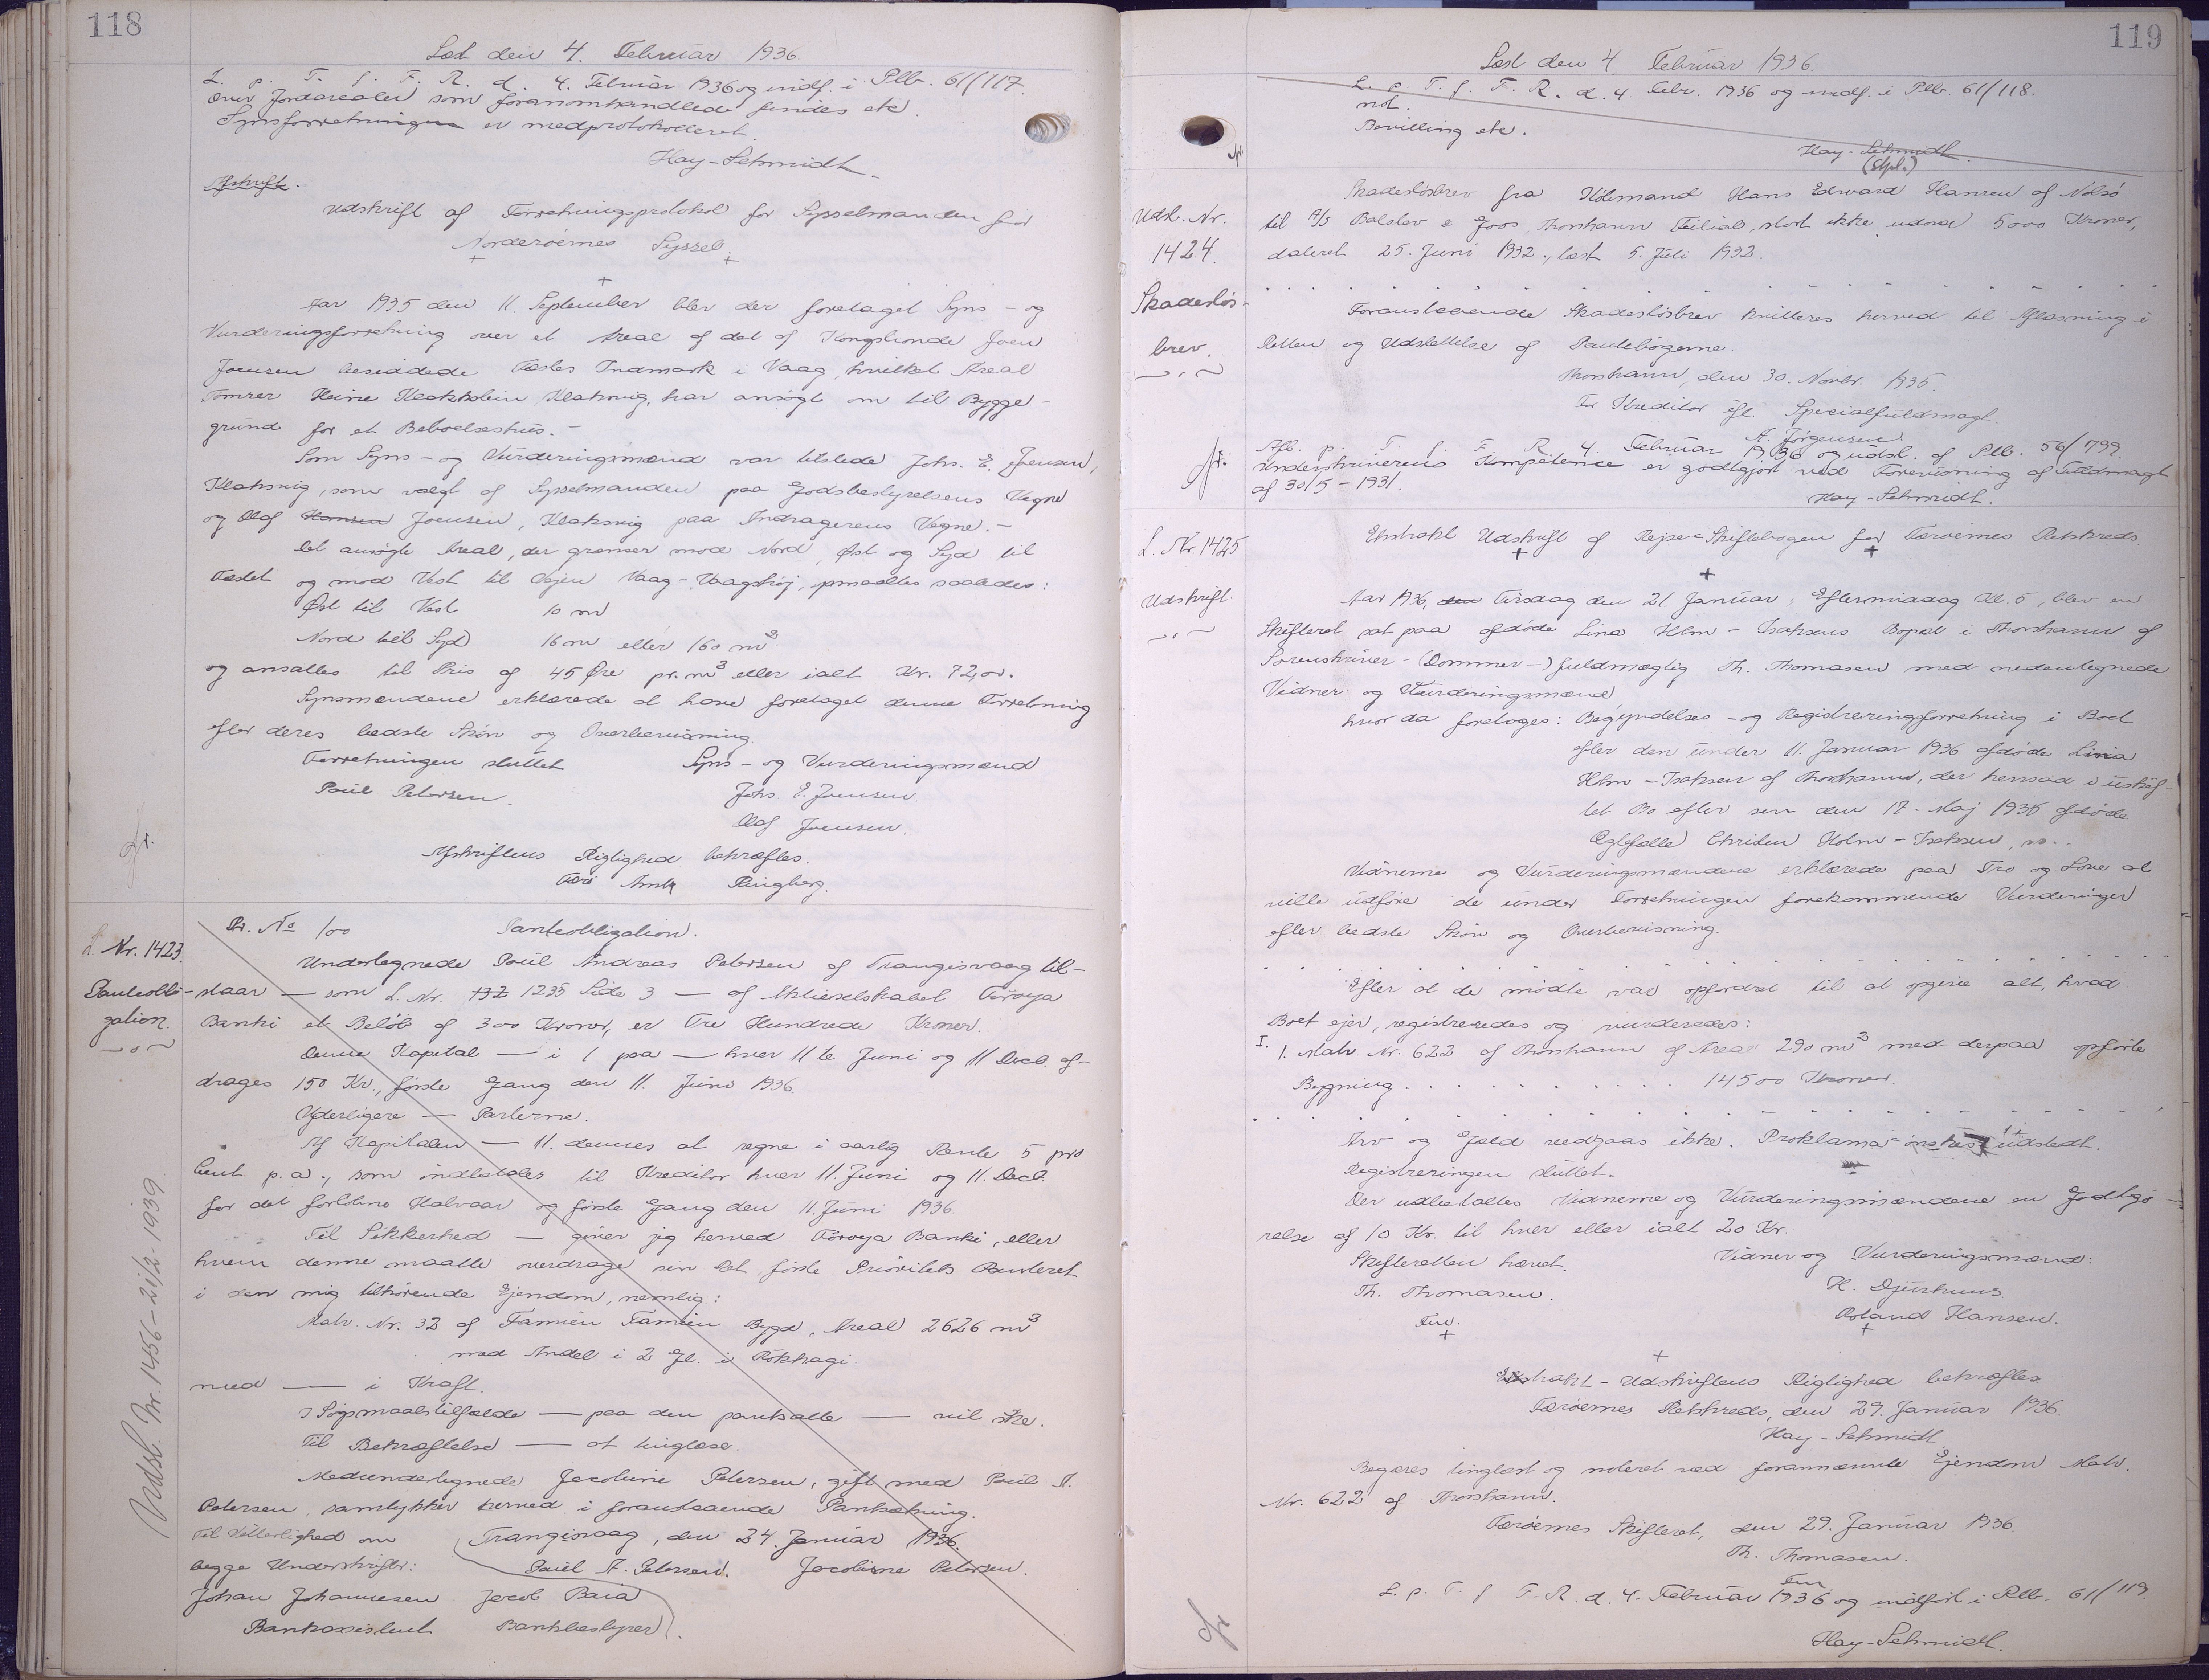 118
Læst den 4. Februar 1936.
L. p. T. f. F. R. d. 4. Februar 1936 og indf. i Plb. 61/117.
Over Jordarealer som foranomhandlede findes etc.
Synsforretningen er medprotokolleret.
Hay-Schmidt.
Afskrift.
Udskrift af Forretningsprotokol for Sysselmanden for
Norderøernes Syssel.
Aar 1935 den 11. September blev der foretaget Syns- og
Vurderingsforretning over et Areal af det af Kongsbonde Joen
Joensen besiddede Fæstes Indmark i Vaag, hvilket Areal
Tømrer Heine Klakstein Klaksvig, har ansøgt om til Bygge-
grund for et Beboelseshus.-
Som Syns- og Vurderingsmænd var tilstede Johs. E. Joensen,
Klaksvig, som valgt af Sysselmanden paa Jordsbestyrelsens Vegne
og Olaf Hansen Joensen, Klaksvig paa Andragerens Vegne.-
Det ansøgte Areal, der grænser mod Nord, Øst og Syd til
Fæstet og mod Vest til Vejen Vaag-Vaagshøj, opmaaltes saaledes:
Øst til Vest 10 m
Nord til Syd 16 m eller 160 m²
og ansattes til Pris af 45 Øre pr. m² eller ialt Kr. 72,00.
Synsmændene erklærede at have foretaget denne Forretning
efter deres bedste Skøn og Overbevisning.
Forretningen sluttet Syns- og Vurderingsmænd
Poul Petersen. Johs. E. Joensen.
Olaf Joensen.
Afskriftens Rigtighed bekræftes.
Færø Amt Ringberg.
L. Nr. 1423.
Panteobli-
gation.
Pr. No 100 Panteobligation.
Undertegnede Poul Andreas Petersen af Trangisvaag til-
staar — som L. Nr. 132 1235 Side 3 — af Aktieselskabet Føroya
Banki et Beløb af 300 Kroner, er Tre Hundrede Kroner.
Denne Kapital — i 1 paa — hver 11te Juni og 11 Decb. af-
drages 150 Kr., første Gang den 11. Juni 1936.
Yderligere — Parterne.
Af Kapitalen — 11. dennes at regne i aarlig Rente 5 pro
Cent p. a., som indbetales til Kreditor hver 11. Juni og 11. Decb.
for det forløbne Halvaar og første Gang den 11. Juni 1936.
Til Sikkerhed — giver jeg herved Føroya Banki, eller
hvem denne maatte overdrage sin Ret første Prioritets Panteret
i den mig tilhørende Ejendom, nemlig:
Matr. Nr. 32 af Famien Famien Bygd, Areal 2626 m²
med Andel i 2 Gl. i
med — i Kraft.
I Søgsmaalstilfælde — paa den pantsatte — vil ske.
Til Bekræftelse — at tinglæse.
Medundertegnede Jacobine Petersen, gift med Poul A.
Petersen, samtykker herved i foranstaaende Pantsætning.
Til Vitterlighed om Trangisvaag, den 24. Januar 1936.
begge Underskrifter: Poul A. Petersen. Jacobine Petersen.
Johan Johannesen Jacob Baia
Bankassistent Bankbestyrer.
Udsl. Nr. 1456 - 21/2 1939
119
Læst den 4 Februar 1936.
L. p. T. f. F. R. d. 4. Febr. 1936 og indf. i Plb. 61/118.
not.
Bevilling etc.
Hay-Schmidt.
(Dpl.)
Udsl. Nr.
1424.
Skadesløs-
brev.
Skadesløsbrev fra Købmand Hans Edvard Hansen af Nolsø
til A/S Balslev & Joos, Thorshavn Filial, stort ikke udover 5000 Kroner,
dateret 25. Juni 1932., læst 5. Juli 1932.
Foranstaaende Skadesløsbrev kvitteres herved til Aflæsning i
Retten og Udslettelse af Pantebøgerne.
Thorshavn, den 30. Novbr. 1935.
For Kreditor efl. Specialfuldmagt.
A. Jørgensen.
Afl. p. T. f. F. R. 4. Februar 1936 og udsl. af Plb. 56/799.
Underskriverens Kompetence er godtgjort ved Forevisning af Fuldmagt
af 30/5 - 1931.
Hay-Schmidt.
L. Nr. 1425
Udskrift.
Ekstrakt Udskrift af Rejse-Skiftebogen for Færøernes Retskreds.
Aar 1936, den Tirsdag den 21. Januar, Eftermiddag Kl. 5, blev en
Skifteret sat paa afdøde Lina Holm-Isaksens Bopæl i Thorshavn af
Sorenskriver- (Dommer-) fuldmægtig Th. Thomasen med nedentegnede
Vidner og Vurderingsmænd
hvor da foretoges: Begyndelses- og Registreringsforretning i Boet
efter den under 11. Januar 1936 afdøde Lina
Holm-Isaksen af Thorshavn, der hensad i uskif-
tet Bo efter sin den 17. Maj 1935 afdøde
Ægtefælle Christen Holm-Isaksen,
Vidnerne og Vurderingsmændene erklærede paa Tro og Love at
ville udføre de under Forretningen forekommende Vurderinger
efter bedste Skøn og Overbevisning.
Efter at de mødte var opfordret til at opgive alt, hvad
Boet ejer, registreredes og vurderedes:
I. 1. Matr. Nr. 622 af Thorshavn af Areal 290 m² med derpaa opførte
Bygning . . . . . . . . . . . 14500 Kroner.
Arv og Gæld vedgaas ikke. Proklama ønskes udstedt.
Registreringen sluttet.
Der udbetaltes Vidnerne og Vurderingsmændene en Godtgø-
relse af 10 Kr. til hver eller ialt 20 Kr.
Skifteretten hævet. Vidner og Vurderingsmænd:
Th. Thomasen. K. Djurhuus.
Fm. Roland Hansen.
Ekstrakt-Udskriftens Rigtighed bekræftes
Færøernes Retskreds, den 29. Januar 1936.
Hay-Schmidt
Begæres tinglæst og noteret ved forannævnte Ejendom Matr.
Nr. 622 af Thorshavn.
Færøernes Skifteret, den 29. Januar 1936.
Th. Thomasen.
Fm.
L. p. T. f. F. R. d. 4. Februar 1936 og indført i Plb. 61/119.
Hay-Schmidt.